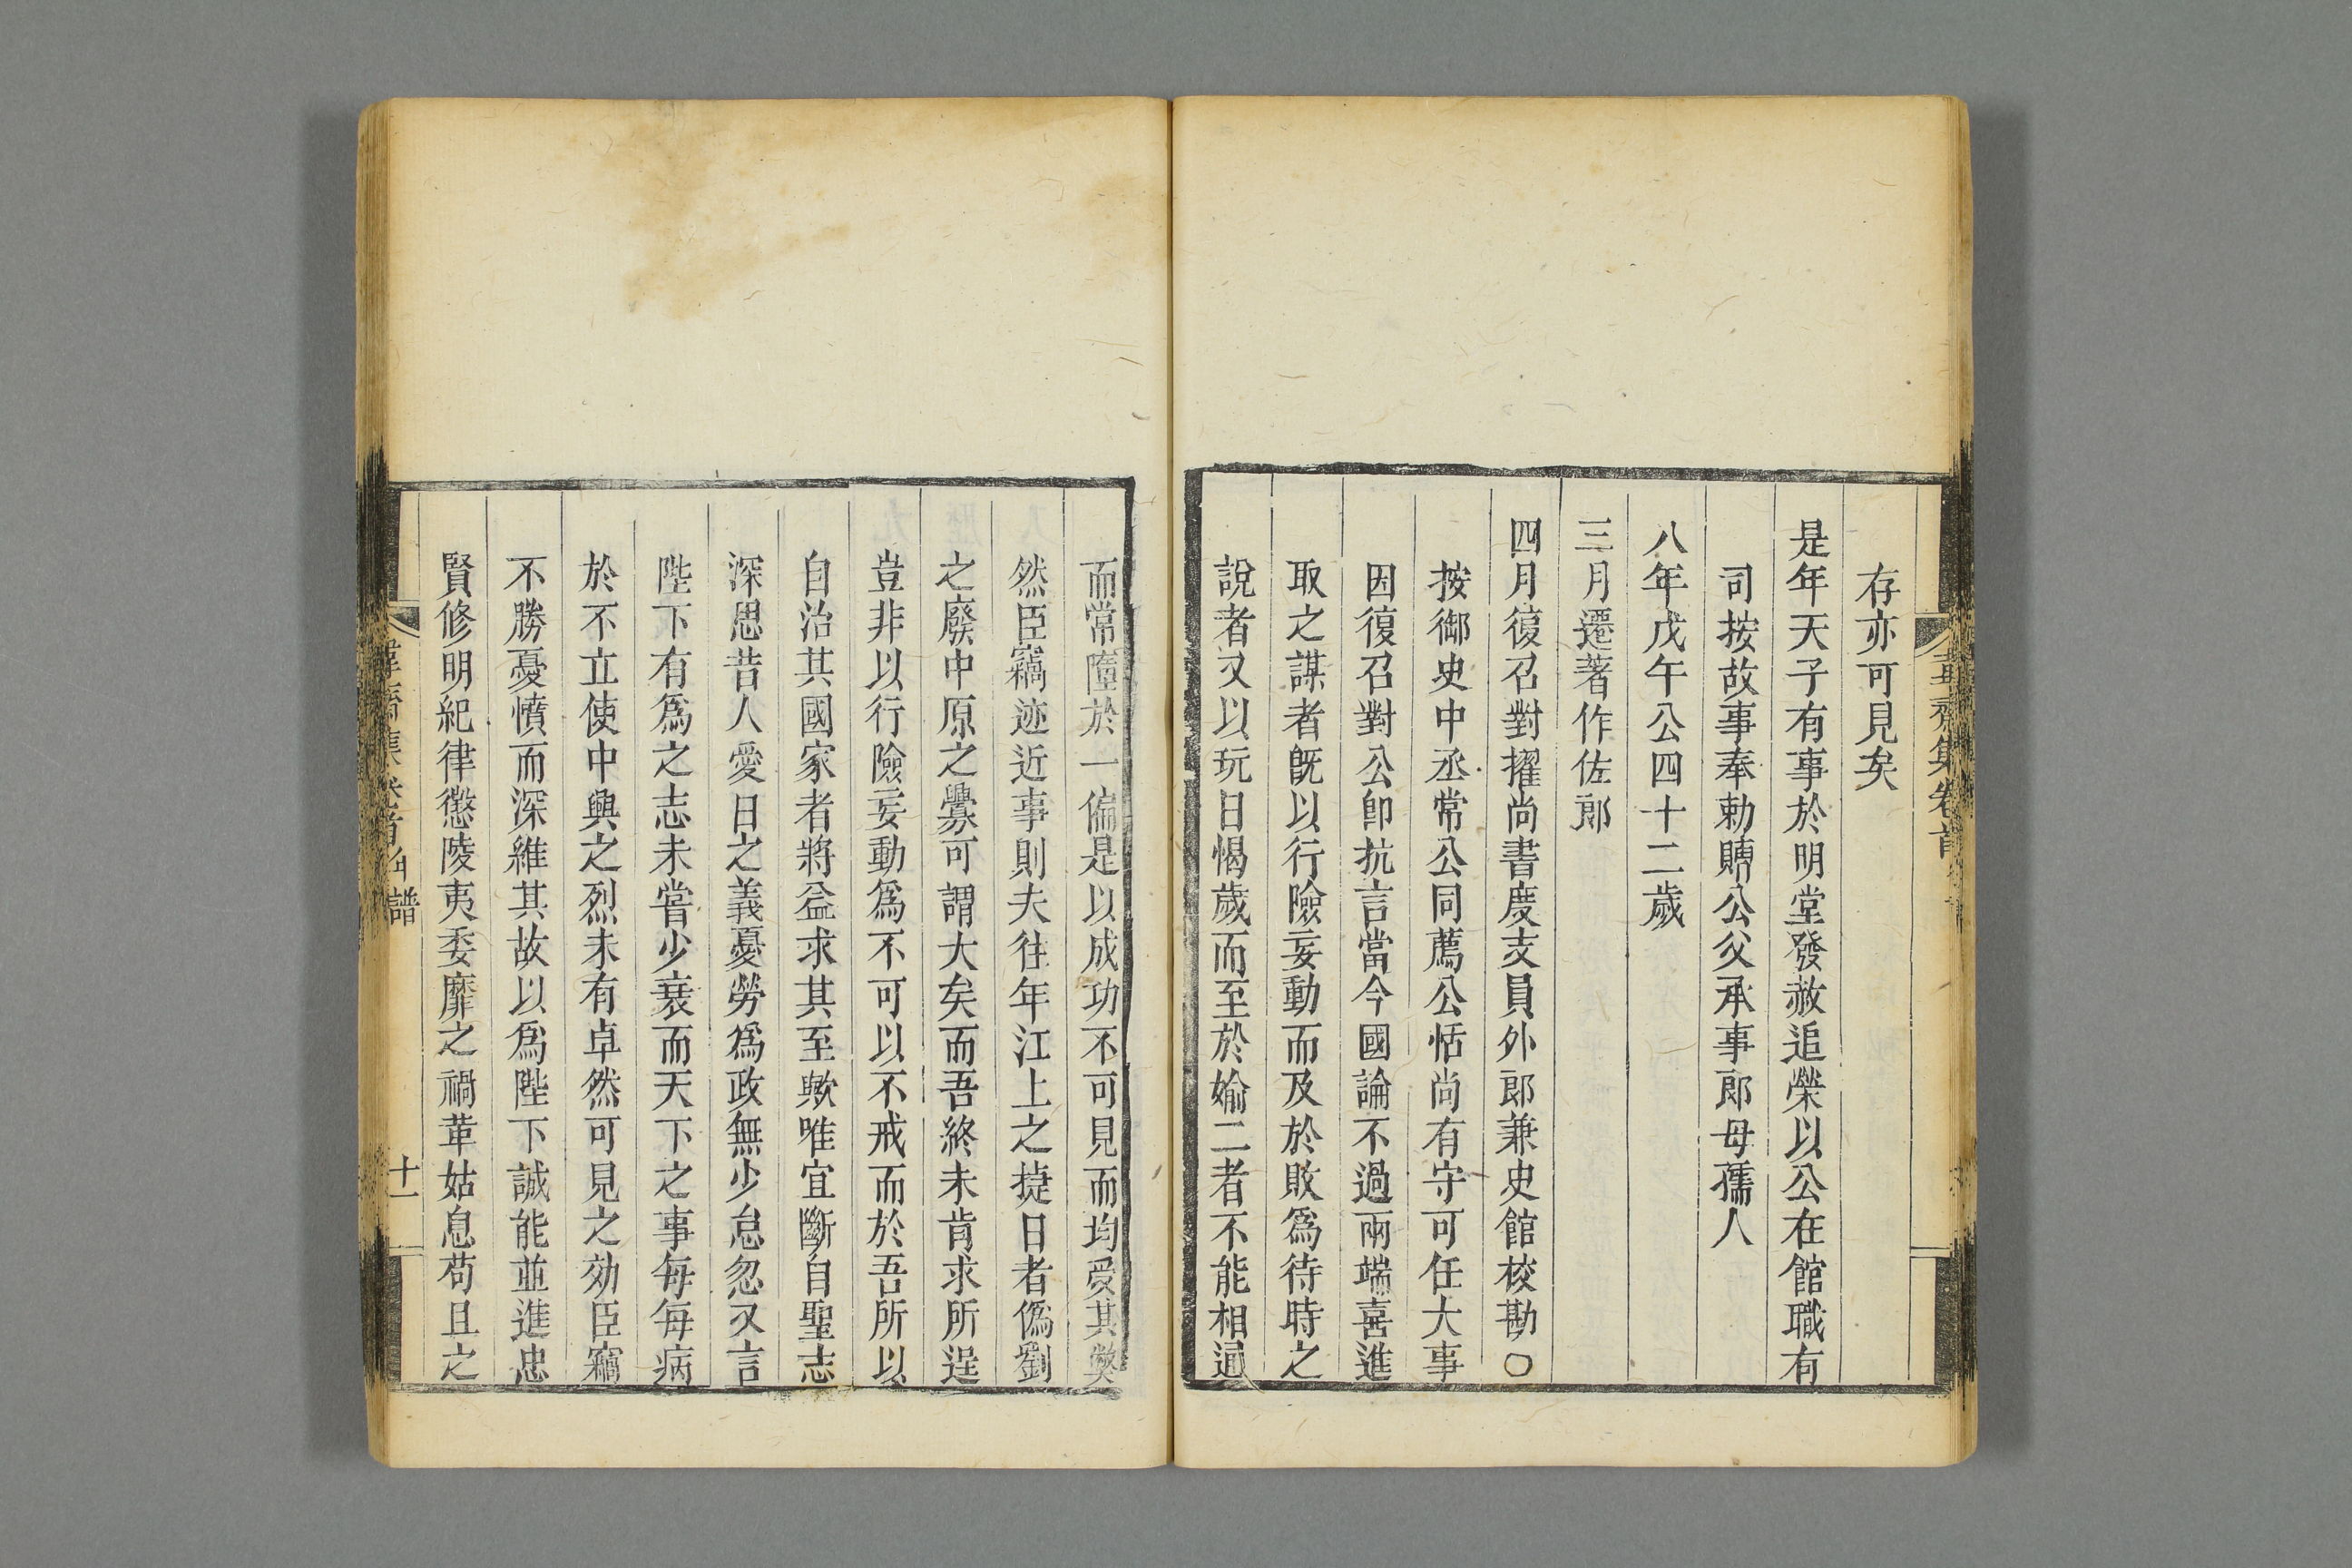 存亦可見矣
是年天子有事於明堂發赦追榮以公在館職有
司按故事奉勅贈公父承事郎母孺人
八年戊午公四十二歲
三月遷著作佐郎
四月復召對擢尚書度支員外郎兼史館校勘○
按御史中丞常公同薦公恬尚有守可任大事
因復召對公卽抗言當今國論不過兩端喜進
取之謀者旣以行險妄動而及於敗爲待時之
說者又以玩日愒歲而至於媮二者不能相通
而常墮於一偏是以成功不可見而均受其獘
然臣竊迹近事則夫往年江上之捷日者僞劉
之廢中原之釁可謂大矣而吾終未肯求所逞
豈非以行險妄動爲不可以不戒而於吾所以
自治其國家者將益求其至歟唯宜斷自聖志
深思昔人愛日之義憂勞爲政無少怠忽又言
陛下有爲之志未嘗少衰而天下之事每每病
於不立使中興之烈未有卓然可見之効臣竊
不勝憂憤而深維其故以爲陛下誠能並進忠
賢修明紀律懲陵夷委靡之禍革姑息苟且之
韋齋集卷首年譜
十一